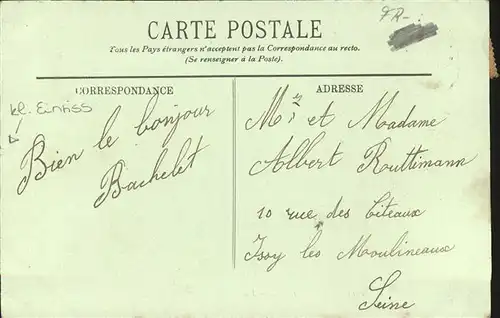 FR-
CARTE POSTALE
Tous les Pays étrangers n'acceptent pas la Correspondance au recto.
(Se renseigner à la Poste).
CORRESPONDANCE
ADRESSE
kl. Einriss
Bien le bonjour
Bachelet
Mr et Madame
Albert Routtimann
10 rue des Citeaux
Issy les Moulineaux
Seine